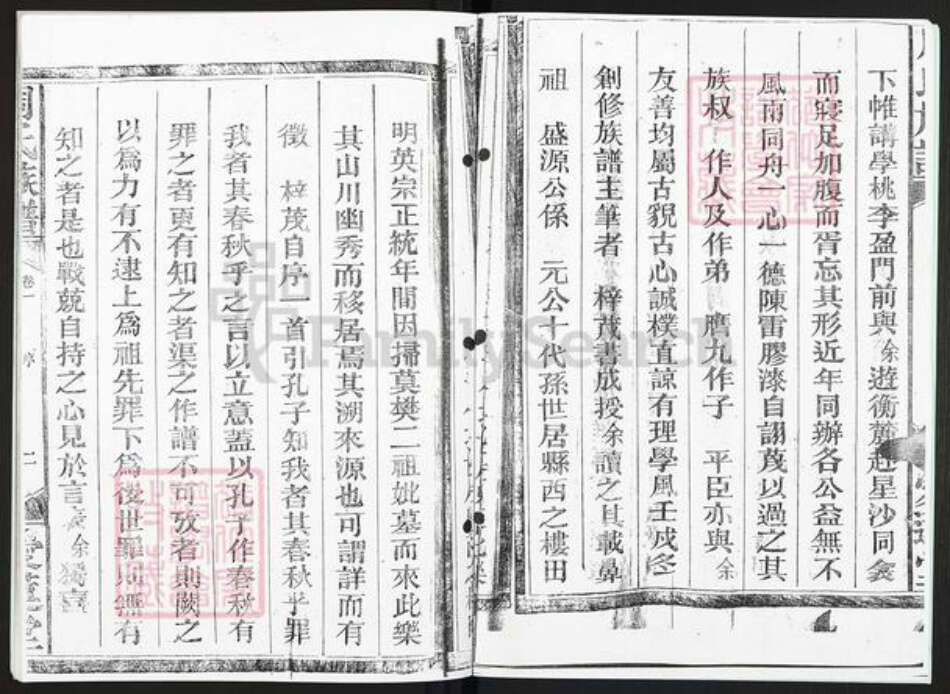 下帷講學桃李盈門前與余遊衡麓赴星沙同衾
而寢足加腹而胥忘其形近年同辦各公益無不
風雨同舟一心一德陳雷膠漆自詡蔑以過之其
族叔 作人及作弟 膺九作子 平臣亦與余
友善均屬古貌古心誠樸直諒有理學風壬戌冬
創修族譜主筆者 梓茂書成授余讀之其載鼻
祖 盛源公係 元公十代孫世居縣西之樓田
明英宗正統年間因掃莫樊二祖妣墓而來此樂
其山川幽秀而移居焉其溯來源也可謂詳而有
徵 梓茂自序一首引孔子知我者其春秋乎罪
我者其春秋乎之言以立意蓋以孔子作春秋有
罪之者更有知之者渠之作譜不可攷者則闕之
以為力有不逮上為祖先罪下為後世罪則無有
知之者是也戰兢自持之心見於言表余獨喜
周氏族譜 卷一 序 二
FamilySearch